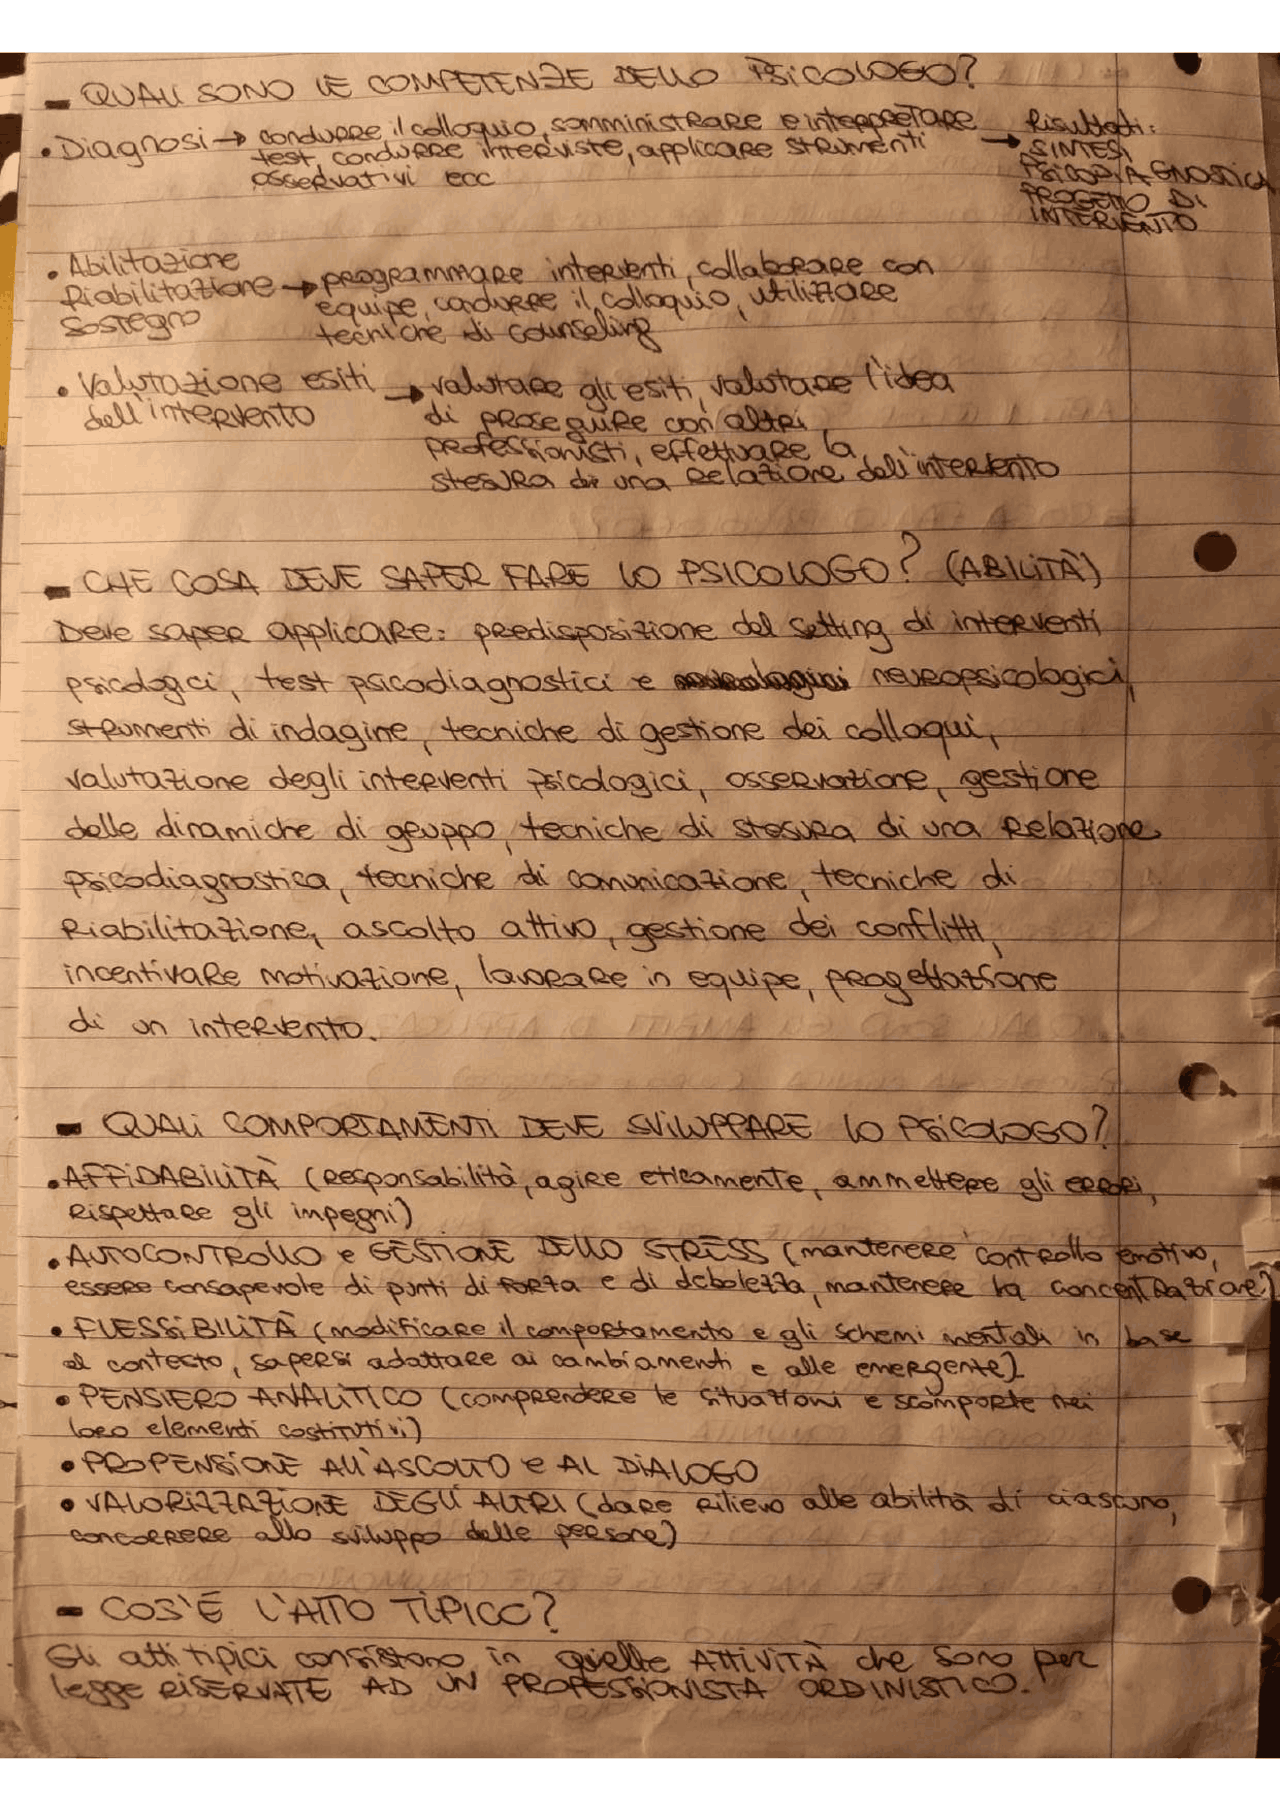 - QUALI SONO LE COMPETENZE DELLO PSICOLOGO?
• Diagnosi → condurre il colloquio, somministrare e interpretare
test, condurre interviste, applicare strumenti
osservativi ecc
→ Risultati:
SINTESI
PSICODIAGNOSTICA
PROGETTO DI
INTERVENTO
• Abilitazione
Riabilitazione
Sostegno
→ programmare interventi, collaborare con
equipe, condurre il colloquio, utilizzare
tecniche di counseling
• Valutazione esiti
dell'intervento
→ valutare gli esiti, valutare l'idea
di proseguire con altri
professionisti, effettuare la
stesura di una relazione dell'intervento
- CHE COSA DEVE SAPER FARE LO PSICOLOGO? (ABILITÀ)
Deve saper applicare: predisposizione del setting di interventi
psicologici, test psicodiagnostici e neuropsicologici,
strumenti di indagine, tecniche di gestione dei colloqui,
valutazione degli interventi psicologici, osservazione, gestione
delle dinamiche di gruppo, tecniche di stesura di una relazione
psicodiagnostica, tecniche di comunicazione, tecniche di
riabilitazione, ascolto attivo, gestione dei conflitti,
incentivare motivazione, lavorare in equipe, progettazione
di un intervento.
- QUALI COMPORTAMENTI DEVE SVILUPPARE LO PSICOLOGO?
• AFFIDABILITÀ (responsabilità, agire eticamente, ammettere gli errori,
rispettare gli impegni)
• AUTOCONTROLLO e GESTIONE DELLO STRESS (mantenere controllo emotivo,
essere consapevole di punti di forza e di debolezza, mantenere la concentrazione)
• FLESSIBILITÀ (modificare il comportamento e gli schemi mentali in base
al contesto, sapersi adattare ai cambiamenti e alle emergente)
• PENSIERO ANALITICO (comprendere le situazioni e scomporle nei
loro elementi costitutivi)
• PROPENSIONE ALL'ASCOLTO e AL DIALOGO
• VALORIZZAZIONE DEGLI ALTRI (dare rilievo alle abilità di ciascuno,
concorrere allo sviluppo delle persone)
- COS'È L'ATTO TIPICO?
Gli atti tipici consistono in quelle ATTIVITÀ che sono per
legge RISERVATE AD UN PROFESSIONISTA ORDINISTICO.